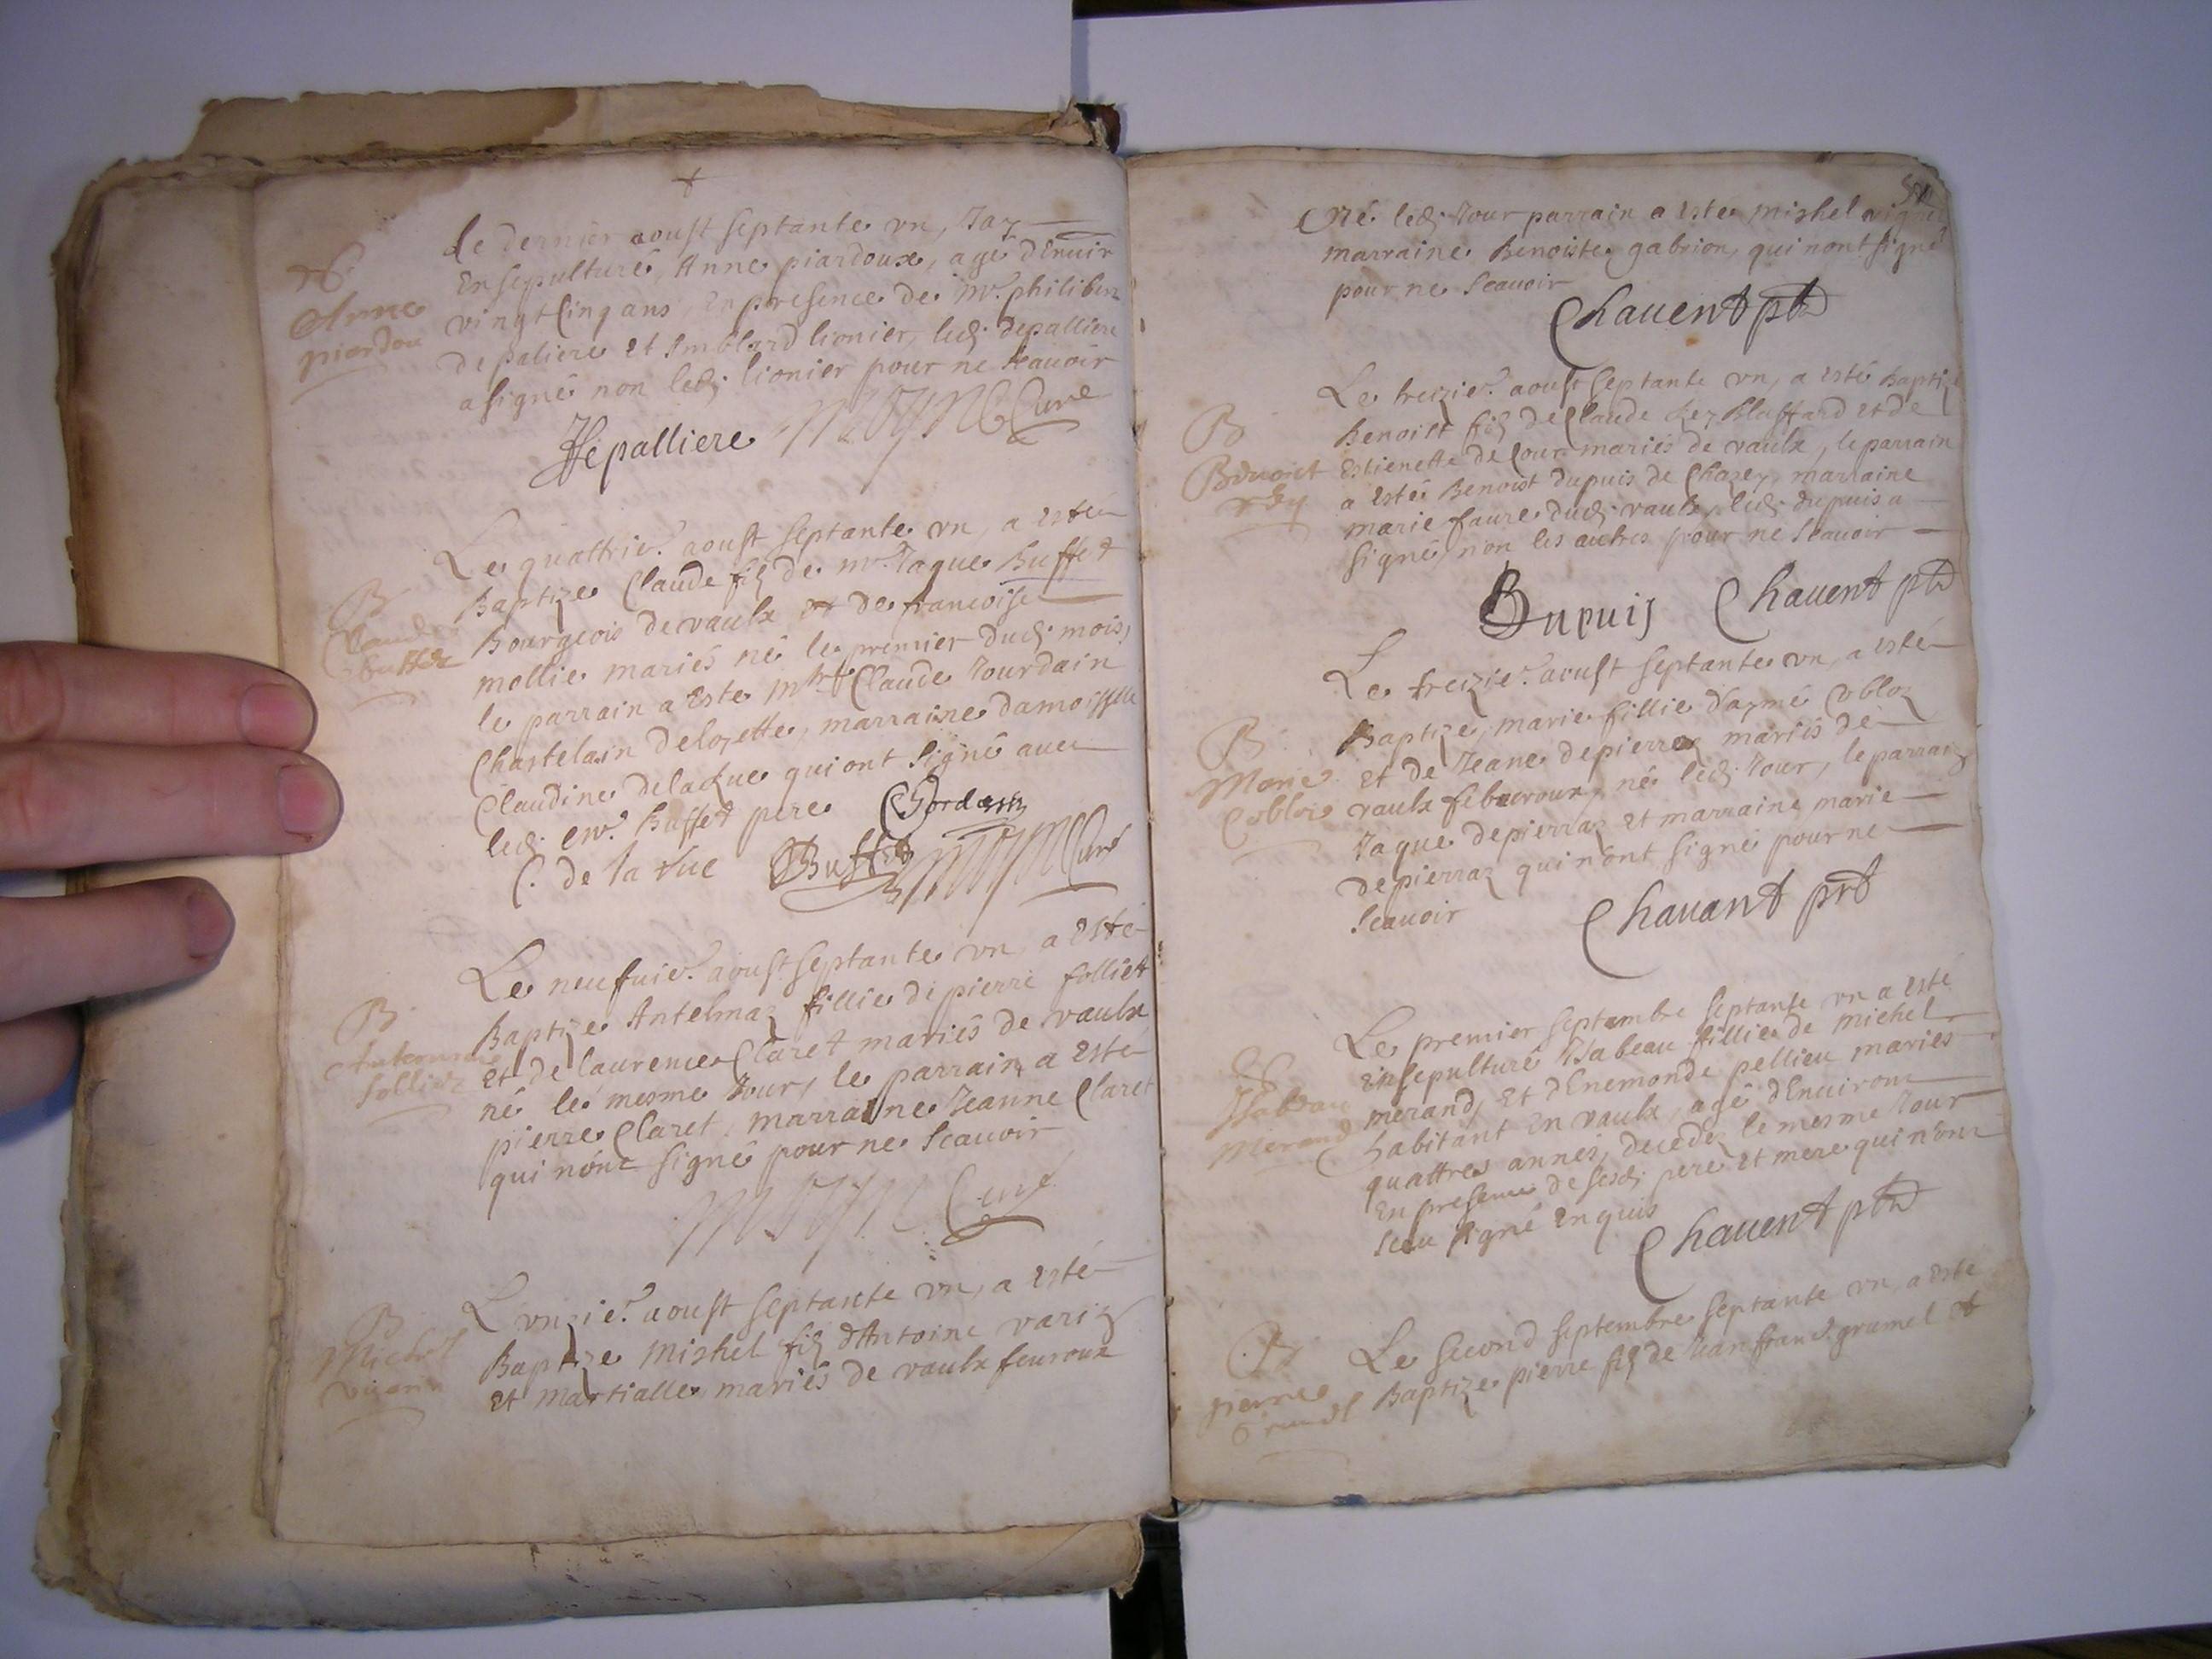 Le dernier aoust septante un, Jay
Ensepulturé, Anne piardoux, age dEnuir
vingt Cinq ans, En presence de mr. philiber
depaliere et Imblard lionier, led. depalliere
a signé non led. lionier pour ne scauoir
Anne
piardou
Depalliere Curé
Le quattrie. aoust septante un, a esté
Baptize Claude fis de mr. Jaque Buffet
Bourgeois de vaulx et de francoise
mollie mariés né le premier dud. mois,
le parrain a este Claude Jourdain
Chastelain deloyette, marraine damoiselle
Claudine delaRue qui ont signé auec
led. Buffet pere
B
Claude
buffet
Jordain
C. de la rue Buffet Curé
Le neufuie. aoust septante un a esté
Baptize Antelmaz fillie de pierre folliet
et de laurence Claret mariés de vaulx
né le mesme Jour, le parrain a esté
pierre Claret, marraine Jeanne Claret
qui nont signé pour ne scauoir
B
folliet
Curé
L unzie. aoust septante un, a esté
Baptize Mishel fis dAntoine
et martialle mariés de vaulx feuroux
B
Michel
Né led. Jour parrain a este mishel
marraine Benoiste gabrion, qui nont signé
pour ne scauoir
Chauent ptr
Le treizie. aoust septante un, a esté Baptizé
Benoist fis de Claude Rey Bluffard et de
Estienette de Cour mariés de vaulx, le parrain
a esté Benoist dupuis de Chazey, marraine
marie faure dud. vaulx, led. dupuis a
signé, non les autres pour ne scauoir
B
Benoict
rey
Dupuis Chauent ptr
Le treizie. aoust septante un, a esté
Baptize, marie fillie daymé Cobloz
et de Jeane depierraz mariés de
vaulx febuuroux, né led. Jour, le parrain
Jaque depierraz et marraine marie
depierraz qui n'ont signé pour ne
scauoir
B
Marie
Chauant prt
Le premier septembre septante un a esté
Ensepulturé Isabeau fillie de michel
merand, et dEnemonde pellieu mariés
habitant En vaulx, agé dEnuiron
quattres annés, decedez le mesme Jour
En presence de sesd. pere et mere qui n'ont
sceu signé Enquis
Isabeau
Merand
Chauent ptr
Le second septembre septante un, a este
Baptize pierre fis de Jean françs gramel et
B
pierre